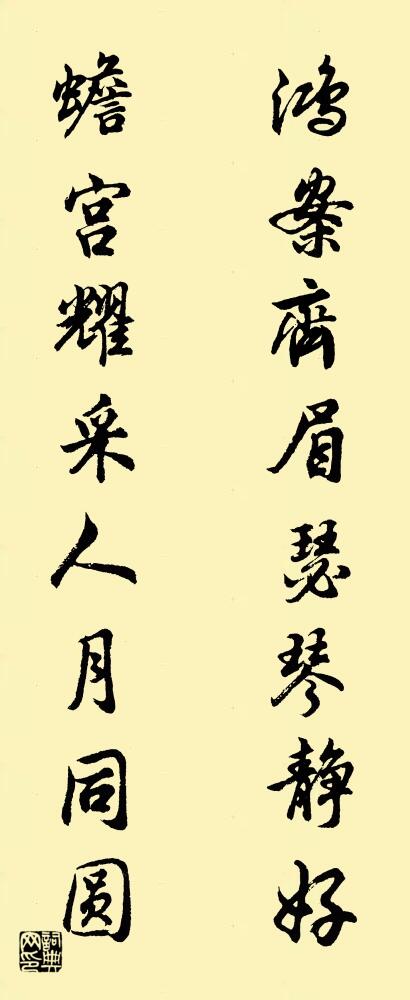 鴻案齊眉瑟琴静好
蟾宫耀采人月同圓
詞典网印